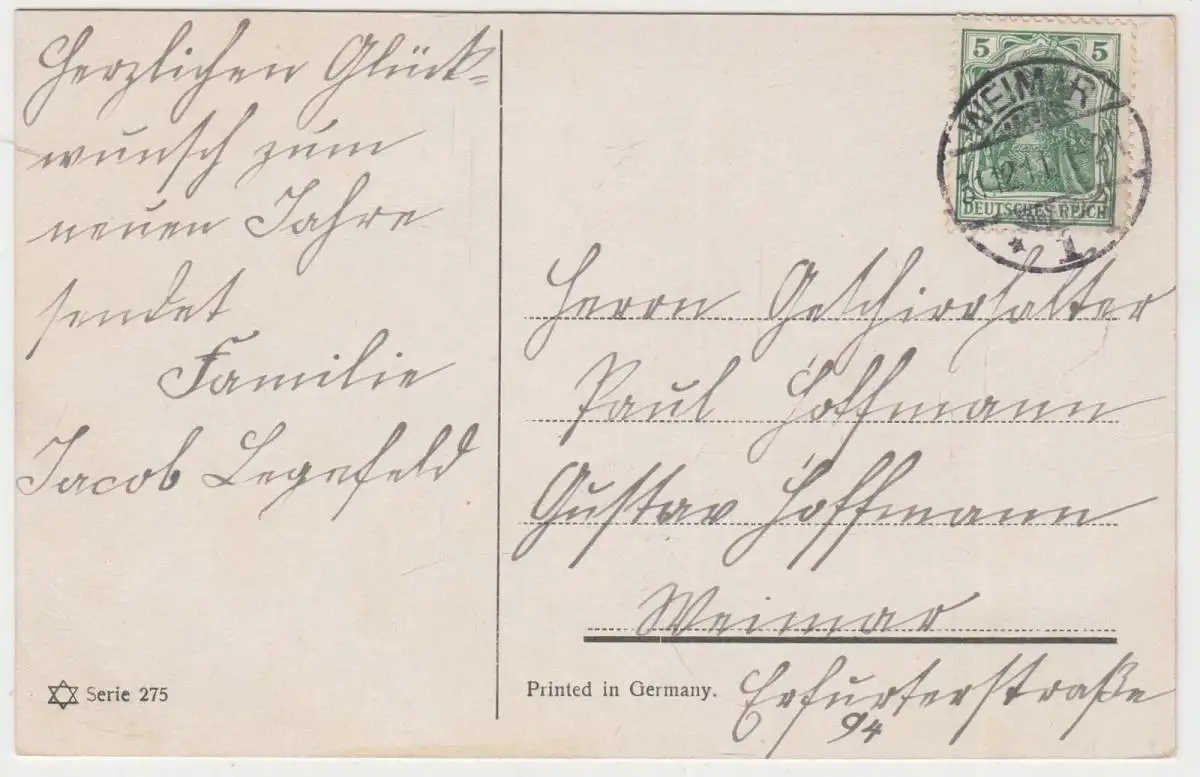 Herzlichen Glück-
wunsch zum
neuen Jahre
sendet
Familie
Jacob Legefeld
Serie 275
5 5
WEIMAR
DEUTSCHES REICH
* 1.
Herrn Geschirrhalter
Paul Hoffmann
Gustav Hoffmann
Weimar
Printed in Germany.
Erfurterstraße
94